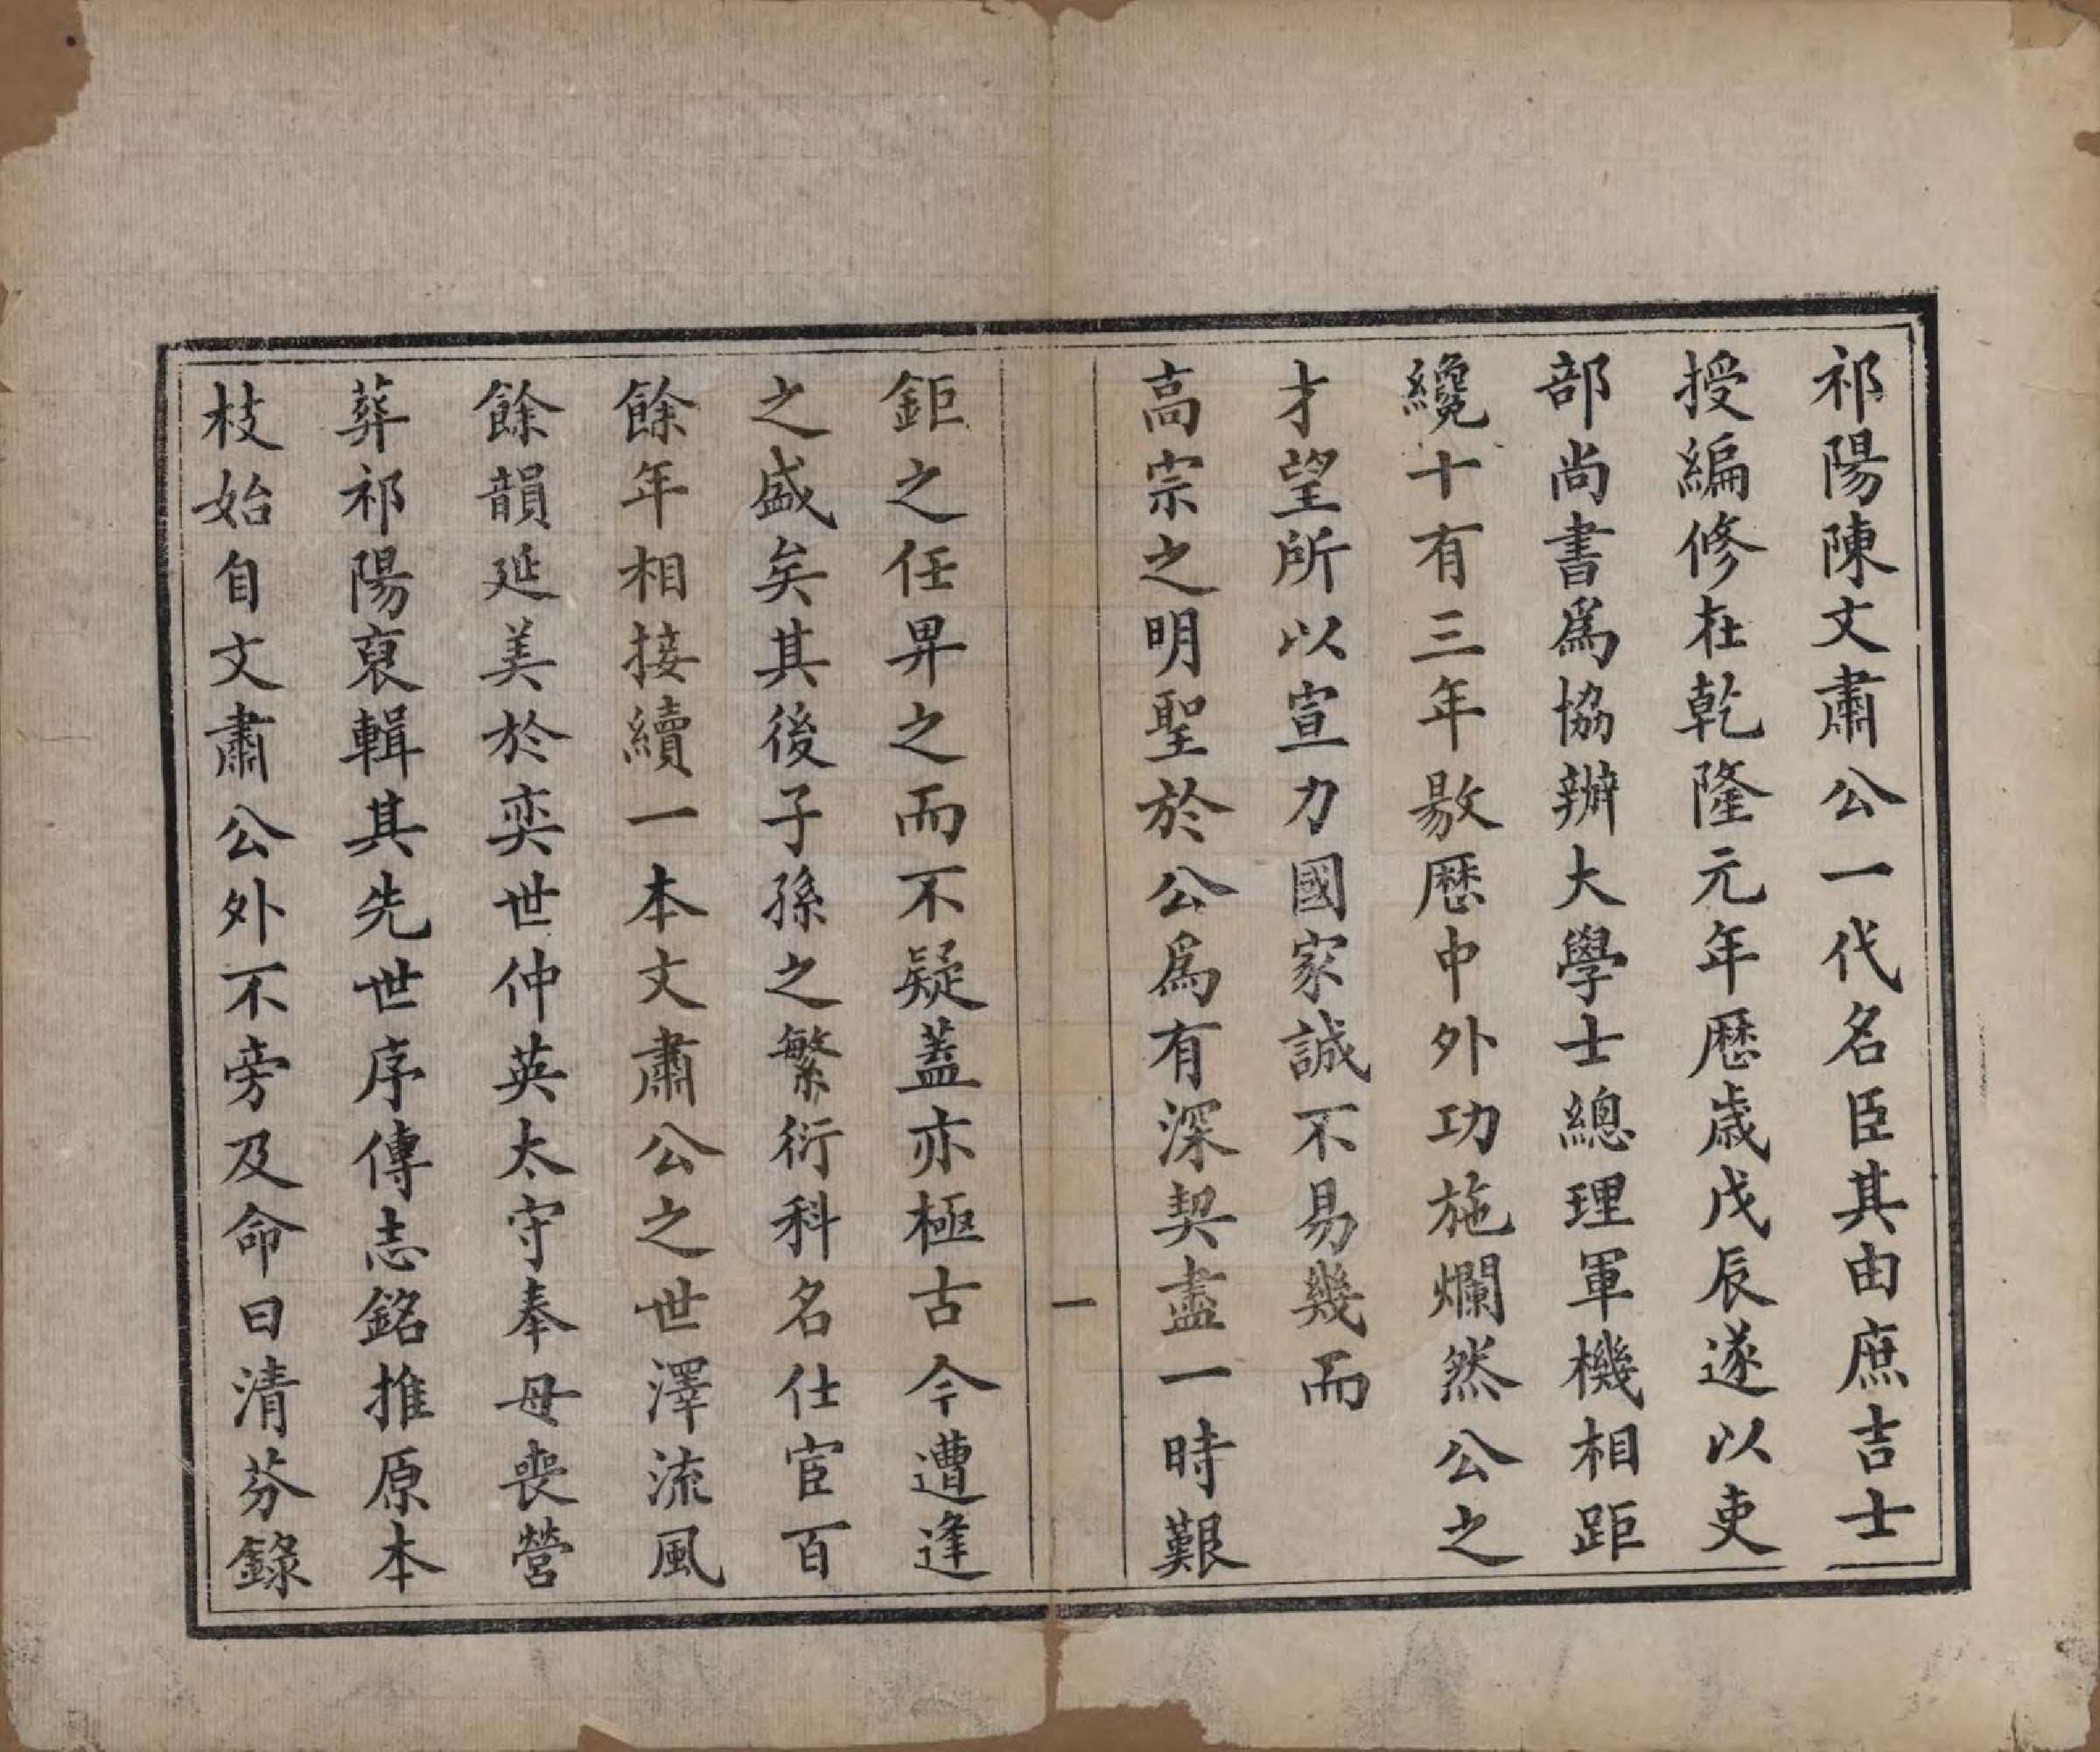 祁陽陳文肅公一代名臣其由庶吉士
授編修在乾隆元年歷歲戊辰遂以吏
部尚書爲協辦大學士總理軍機相距
纔十有三年敭歷中外功施爛然公之
才望所以宣力國家誠不易幾而
高宗之明聖於公爲有深契盡一時艱
一
鉅之任畀之而不疑蓋亦極古今遭逢
之盛矣其後子孫之繁衍科名仕宦百
餘年相接續一本文肅公之世澤流風
餘韻延美於奕世仲英太守奉母喪營
葬祁陽裒輯其先世序傳志銘推原本
枝始自文肅公外不旁及命曰清芬錄